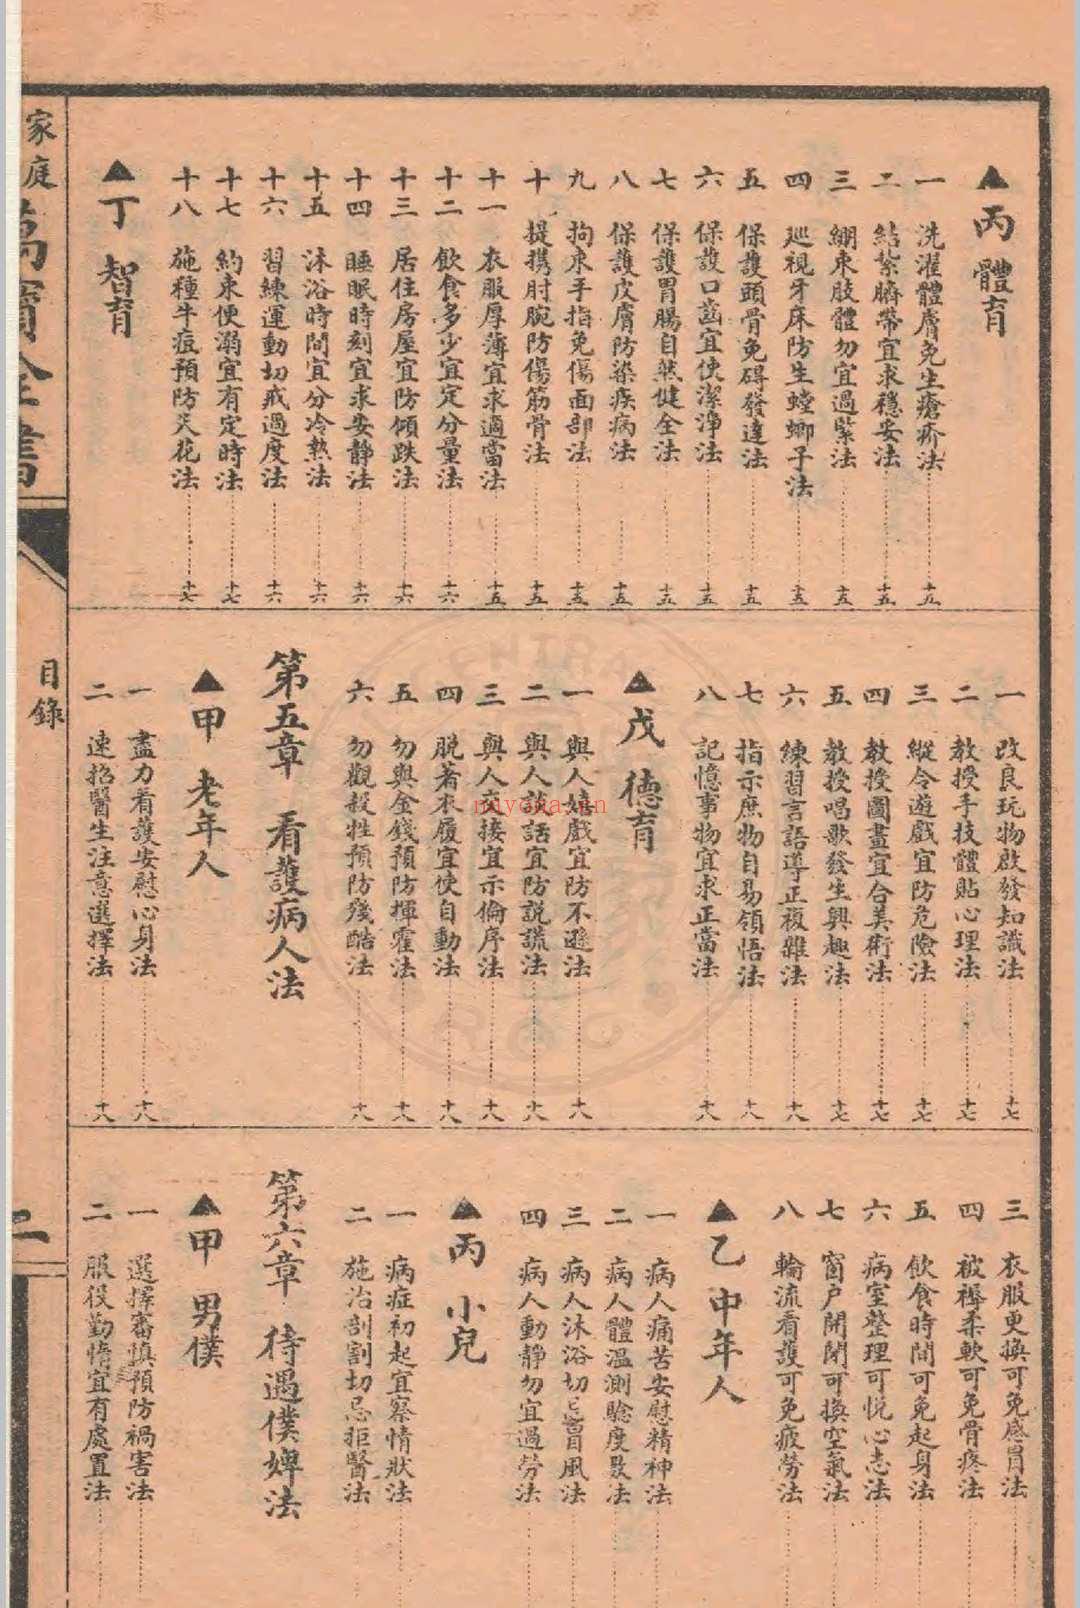 ▲丙　體育
一　洗濯體膚免生瘡疥法　十五
二　結紮臍帶宜求穩妥法　十五
三　綳束肢體勿宜過緊法　十五
四　巡視牙床防生螳螂子法　十五
五　保護頭骨免碍發達法　十五
六　保護口齒宜使潔淨法　十五
七　保護胃腸自然健全法　十五
八　保護皮膚防染疾病法　十五
九　拘束手指免傷面部法　十五
十　提携肘腕防傷筋骨法　十五
十一　衣服厚薄宜求適當法　十五
十二　飲食多少宜定分量法　十六
十三　居住房屋宜防傾跌法　十六
十四　睡眠時刻宜求安靜法　十六
十五　沐浴時間宜分冷熱法　十六
十六　習練運動切戒過度法　十六
十七　約束便溺宜有定時法　十七
十八　施種牛痘預防天花法　十七
▲丁　智育
一　改良玩物啟發知識法　十七
二　教授手技體貼心理法　十七
三　縱令遊戲宜防危險法　十七
四　教授圖畫宜合美術法　十七
五　教授唱歌發生興趣法　十七
六　練習言語導正複雜法　十八
七　指示庶物自易領悟法　十八
八　記憶事物宜求正當法　十八
▲戊　德育
一　與人嬉戲宜防不遜法　十八
二　與人談話宜防説謊法　十八
三　與人交接宜示倫序法　十八
四　脱著衣履宜使自動法　十八
五　勿與金錢預防揮霍法　十八
六　勿觀殺牲預防殘酷法　十八
第五章　看護病人法
▲甲　老年人
一　盡力看護安慰心身法　十八
二　速招醫生注意選擇法　十八
三　衣服更換可免感冒法
四　被褥柔軟可免骨疼法
五　飲食時間可免起身法
六　病室整理可悦心志法
七　窗戶開閉可換空氣法
八　輪流看護可免疲勞法
▲乙　中年人
一　病人痛苦安慰精神法
二　病人體溫測驗度數法
三　病人沐浴切忌冒風法
四　病人動靜勿宜過勞法
▲丙　小兒
一　病症初起宜察情狀法
二　施治剖割切忌拒醫法
第六章　待遇僕婢法
▲甲　男僕
一　選擇審慎預防禍害法
二　服役勤惰宜有處置法
家庭萬寶全書
目錄
二
nayona.cn
CENTRAL
ROC